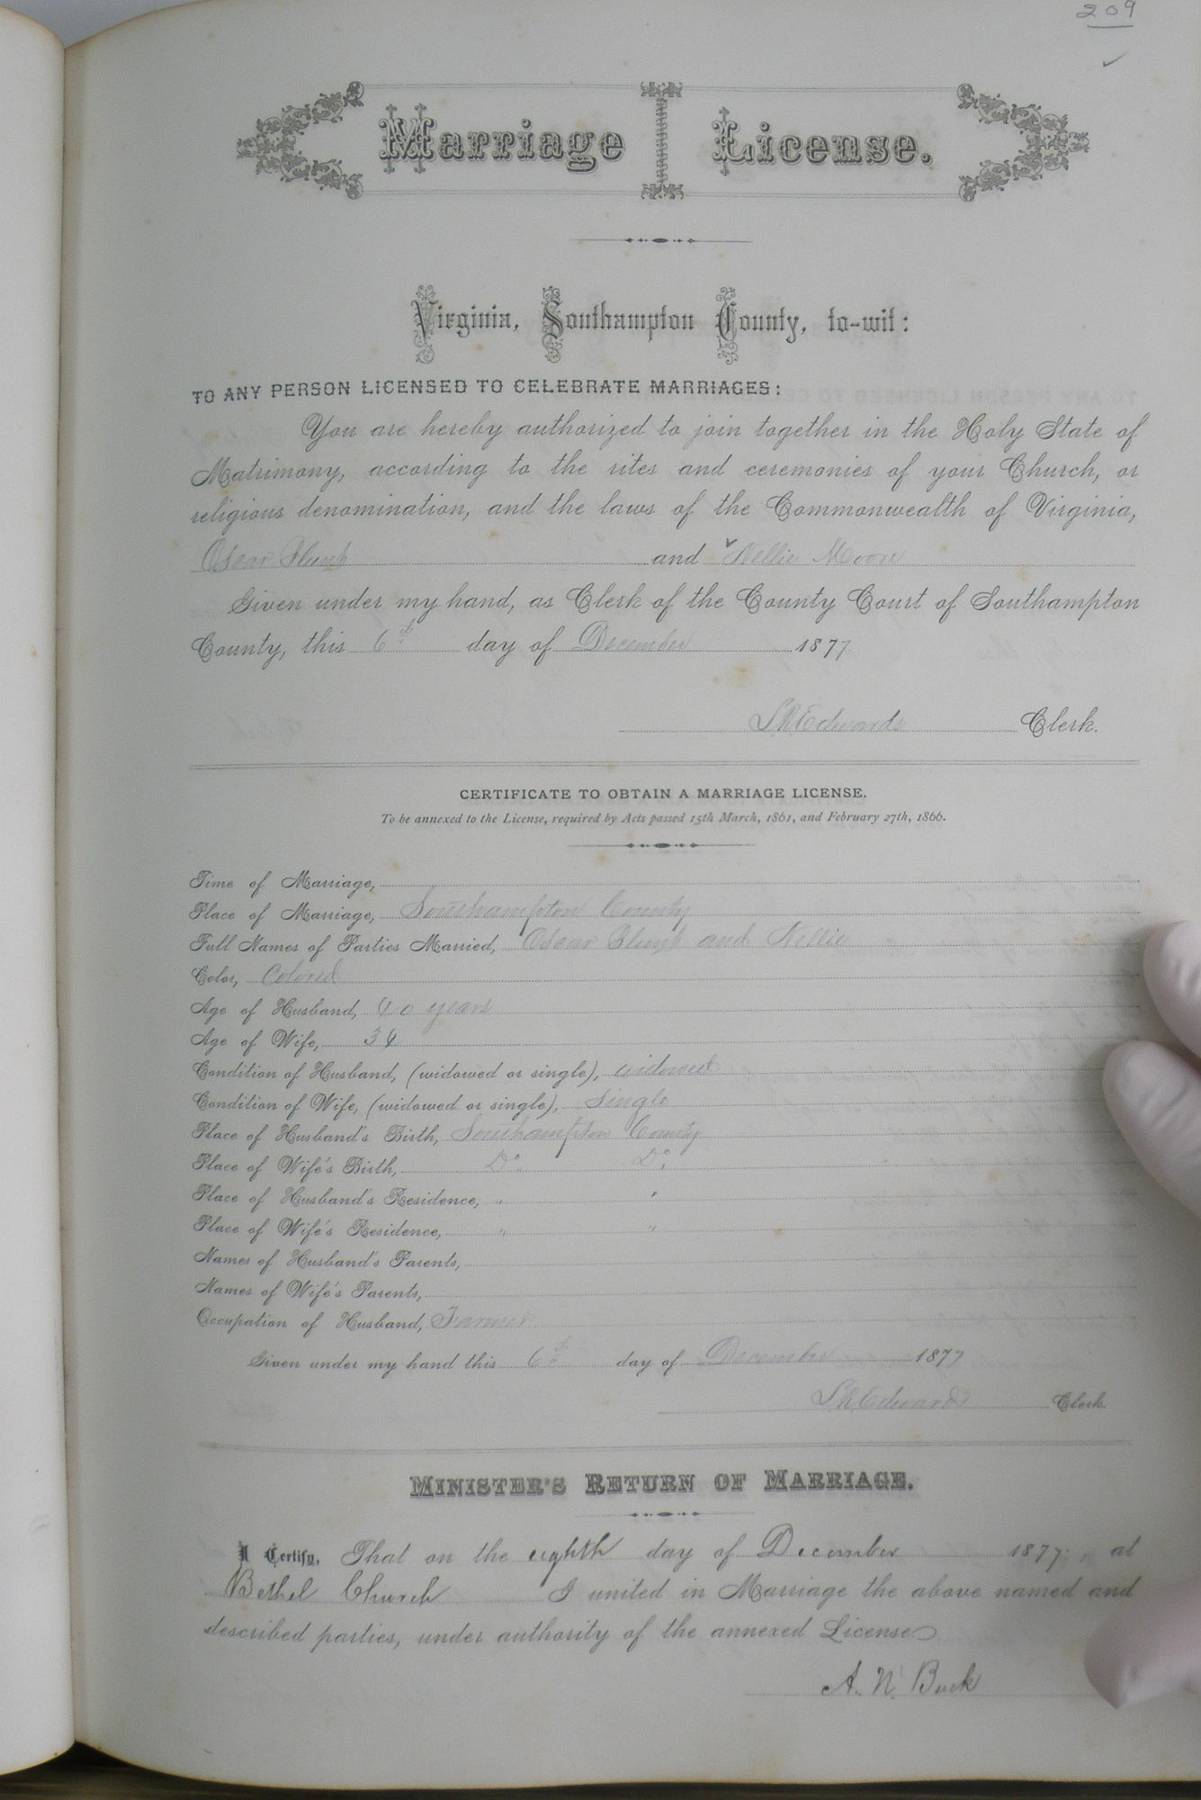 209
Marriage License.
Virginia, Southampton County, to-wit:
TO ANY PERSON LICENSED TO CELEBRATE MARRIAGES:
You are hereby authorized to join together in the Holy State of
Matrimony, according to the rites and ceremonies of your Church, or
religious denomination, and the laws of the Commonwealth of Virginia,
Oscar and Nellie Moore
Given under my hand, as Clerk of the County Court of Southampton
County, this 6th day of December 1877
L R Edwards Clerk.
CERTIFICATE TO OBTAIN A MARRIAGE LICENSE.
To be annexed to the License, required by Acts passed 15th March, 1861, and February 27th, 1866.
Time of Marriage,
Place of Marriage, Southampton County
Full Names of Parties Married, Oscar and Nellie
Color, Colored
Age of Husband, 40 years
Age of Wife, 34
Condition of Husband, (widowed or single), widowed
Condition of Wife, (widowed or single), Single
Place of Husband's Birth, Southampton County
Place of Wife's Birth, Do. Do.
Place of Husband's Residence, " "
Place of Wife's Residence, " "
Names of Husband's Parents,
Names of Wife's Parents,
Occupation of Husband, Farmer
Given under my hand this 6th day of December 1877
L R Edwards Clerk
MINISTER'S RETURN OF MARRIAGE.
I Certify, That on the eighth day of December 1877, at
Bethel Church I united in Marriage the above named and
described parties, under authority of the annexed License
A. N. Buck